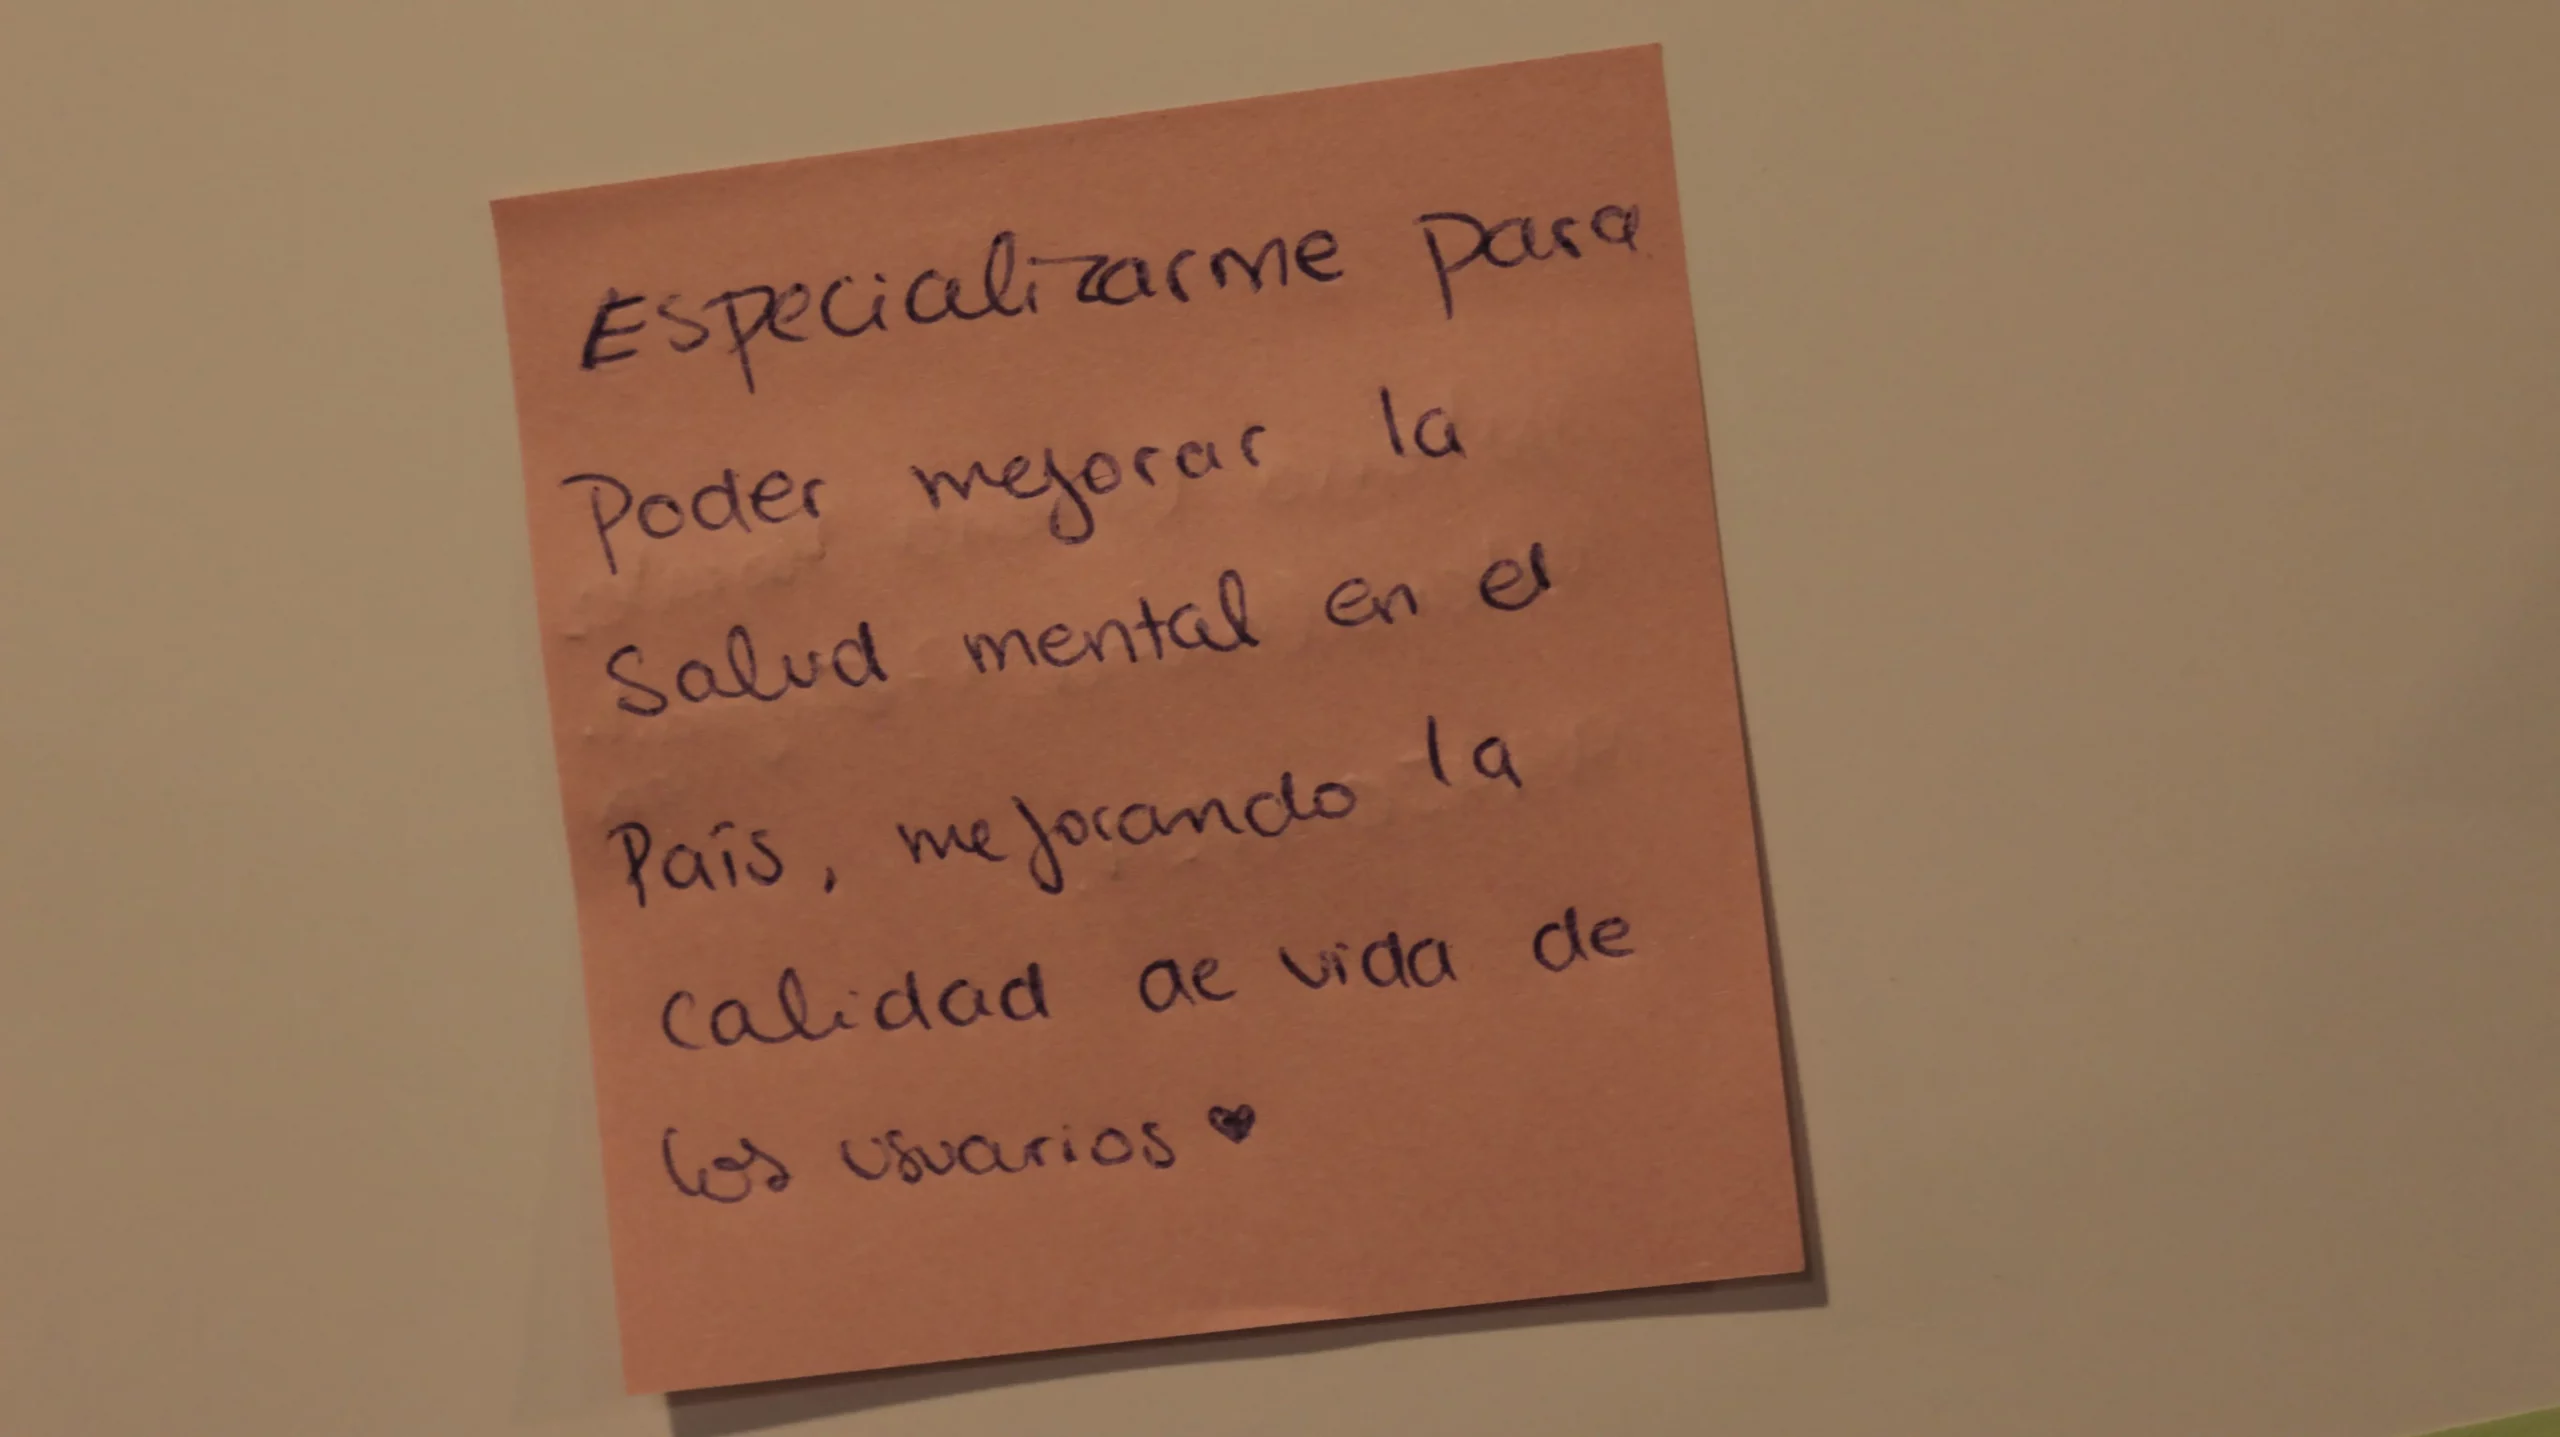 Especializarme para
Poder mejorar la
Salud mental en el
País, mejorando la
calidad de vida de
los usuarios ♥